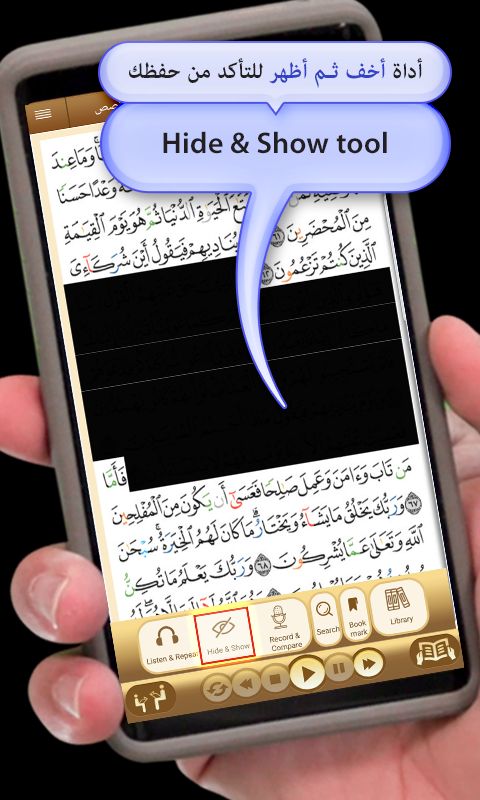 أداة أخف ثم أظهر للتأكد من حفظك
Hide & Show tool
وَمَا عِندَ
وَعْدًا حَسَنًا
ٱلْحَيَوٰةِ ٱلدُّنْيَا ثُمَّ هُوَ يَوْمَ ٱلْقِيَٰمَةِ
مِنَ ٱلْمُحْضَرِينَ ٦١ يُنَادِيهِمْ فَيَقُولُ أَيْنَ شُرَكَآءِىَ
ٱلَّذِينَ كُنتُمْ تَزْعُمُونَ ٦٢
فَأَمَّا
مَن تَابَ وَءَامَنَ وَعَمِلَ صَٰلِحًا فَعَسَىٰٓ أَن يَكُونَ مِنَ ٱلْمُفْلِحِينَ
٦٧ وَرَبُّكَ يَخْلُقُ مَا يَشَآءُ وَيَخْتَارُ مَا كَانَ لَهُمُ ٱلْخِيَرَةُ سُبْحَٰنَ
ٱللَّهِ وَتَعَٰلَىٰ عَمَّا يُشْرِكُونَ ٦٨ وَرَبُّكَ يَعْلَمُ مَا تُكِنُّ
Listen & Repeat
Hide & Show
Record & Compare
Search
Book mark
Library